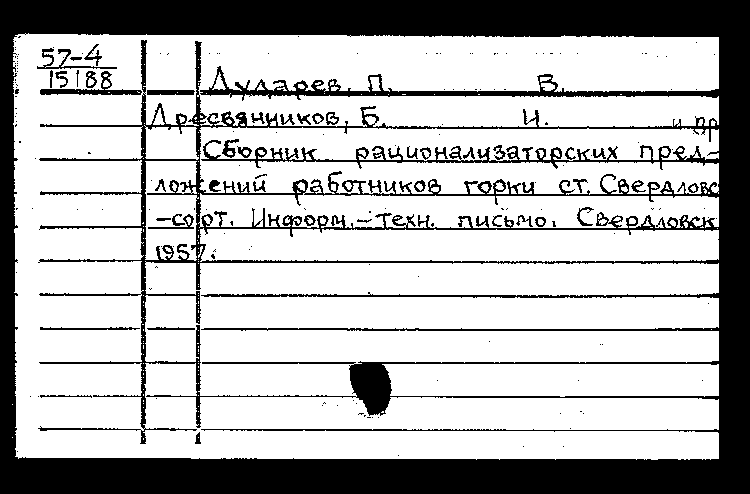 57-4
15188
Дударев, П. В.
Дресвянников, Б. И. и др
Сборник рационализаторских пред-
ложений работников горки ст. Свердловс
-сорт. Информ.-техн. письмо. Свердловск
1957.